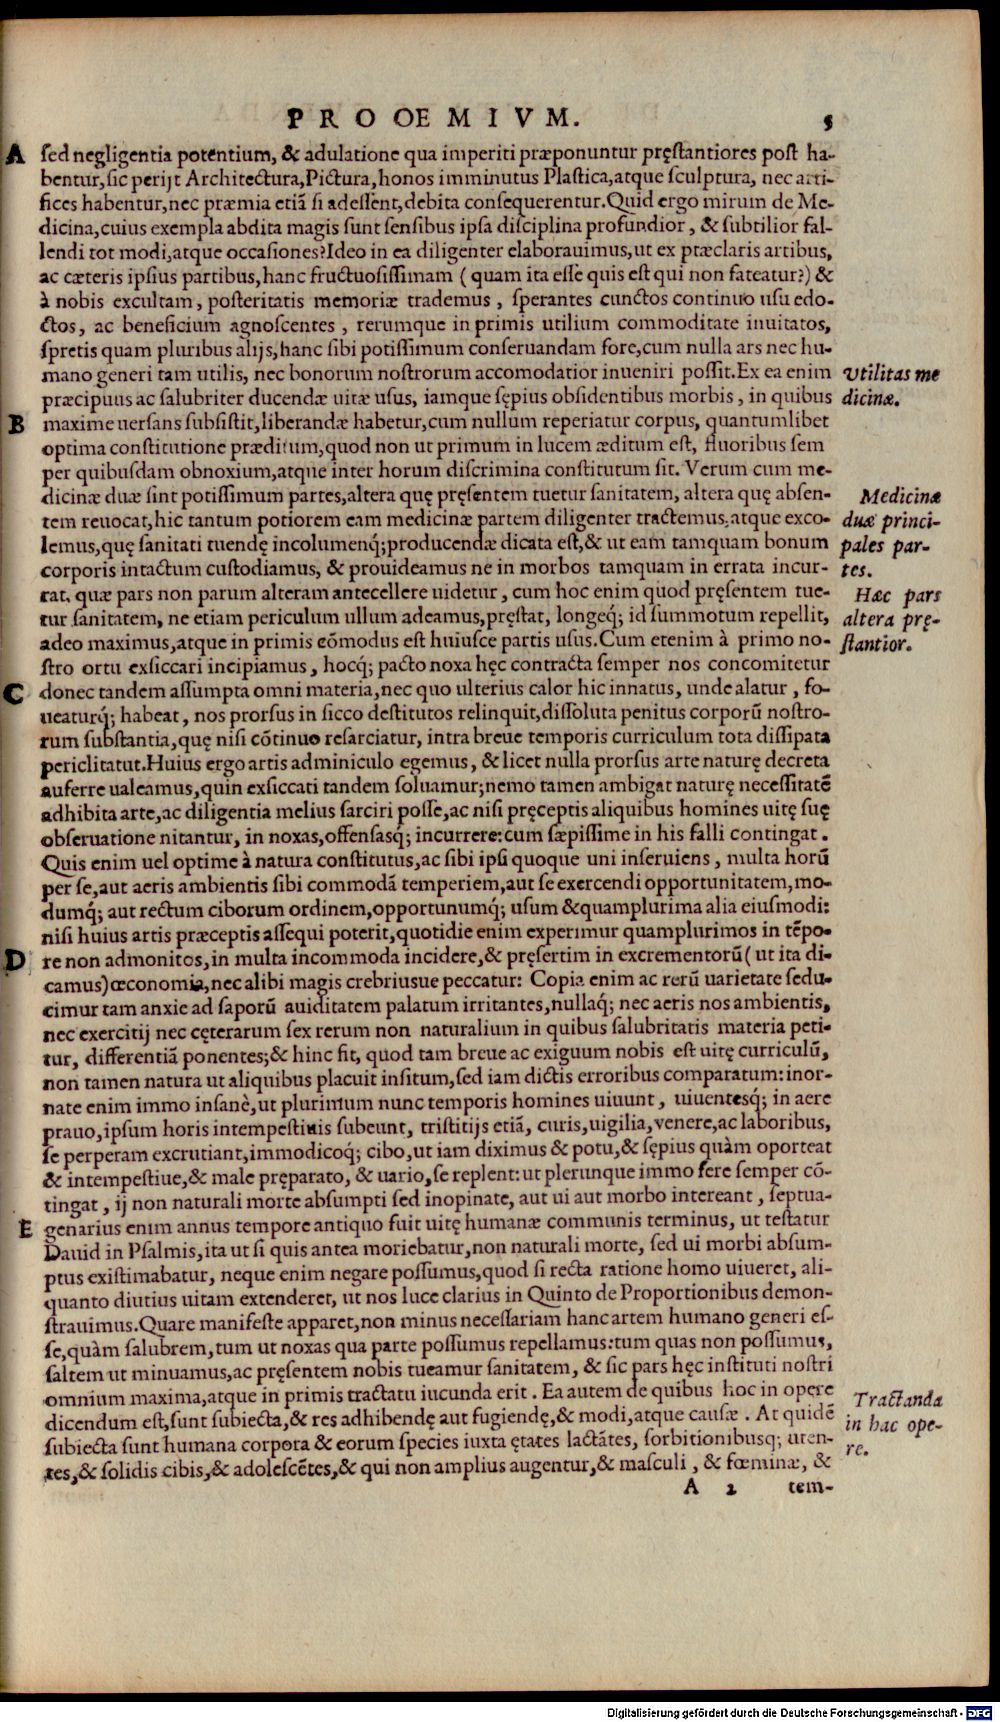 PROOEMIVM. 5
A sed negligentia potentium, & adulatione qua imperiti præponuntur pręstantiores post ha-
bentur, sic perijt Architectura, Pictura, honos imminutus Plastica, atque sculptura, nec arti-
fices habentur, nec præmia etiã si adessent, debita consequerentur. Quid ergo mirum de Me-
dicina, cuius exempla abdita magis sunt sensibus ipsa disciplina profundior, & subtilior fal-
lendi tot modi, atque occasiones? Ideo in ea diligenter elaborauimus, ut ex præclaris artibus,
ac cæteris ipsius partibus, hanc fructuosissimam ( quam ita esse quis est qui non fateatur?) &
à nobis excultam, posteritatis memoriæ trademus, sperantes cunctos continuo usu edo-
ctos, ac beneficium agnoscentes, rerumque in primis utilium commoditate inuitatos,
spretis quam pluribus alijs, hanc sibi potissimum conseruandam fore, cum nulla ars nec hu-
mano generi tam utilis, nec bonorum nostrorum accomodatior inueniri possit. Ex ea enim
Vtilitas me
præcipuus ac salubriter ducendæ uitæ usus, iamque sępius obsidentibus morbis, in quibus
dicinæ.
B maxime uersans subsistit, liberandæ habetur, cum nullum reperiatur corpus, quantumlibet
optima constitutione præditum, quod non ut primum in lucem æditum est, fluoribus sem
per quibusdam obnoxium, atque inter horum discrimina constitutum sit. Verum cum me-
dicinæ duæ sint potissimum partes, altera quę pręsentem tuetur sanitatem, altera quę absen-
Medicinæ
tem reuocat, hic tantum potiorem eam medicinæ partem diligenter tractemus, atque exco-
duæ princi-
lemus, quę sanitati tuendę incolumenq́; producendæ dicata est, & ut eam tamquam bonum
pales par-
corporis intactum custodiamus, & prouideamus ne in morbos tamquam in errata incur-
tes.
rat, quæ pars non parum alteram antecellere uidetur, cum hoc enim quod pręsentem tue-
Hæc pars
tur sanitatem, ne etiam periculum ullum adeamus, pręstat, longeq́; id summotum repellit,
altera prę-
adeo maximus, atque in primis cõmodus est huiusce partis usus. Cum etenim à primo no-
stantior.
stro ortu exsiccari incipiamus, hocq́; pacto noxa hęc contracta semper nos concomitetur
C donec tandem assumpta omni materia, nec quo ulterius calor hic innatus, unde alatur, fo-
ueaturq́; habeat, nos prorsus in sicco destitutos relinquit, dissoluta penitus corporũ nostro-
rum substantia, quę nisi cõtinuo resarciatur, intra breue temporis curriculum tota dissipata
periclitatut. Huius ergo artis adminiculo egemus, & licet nulla prorsus arte naturę decreta
auferre ualeamus, quin exsiccati tandem soluamur; nemo tamen ambigat naturę necessitatẽ
adhibita arte, ac diligentia melius sarciri posse, ac nisi pręceptis aliquibus homines uitę suę
obseruatione nitantur, in noxas, offensasq́; incurrere: cum sæpissime in his falli contingat.
Quis enim uel optime à natura constitutus, ac sibi ipsi quoque uni inseruiens, multa horũ
per se, aut aeris ambientis sibi commodã temperiem, aut se exercendi opportunitatem, mo-
dumq́; aut rectum ciborum ordinem, opportunumq́; usum & quamplurima alia eiusmodi:
nisi huius artis præceptis assequi poterit, quotidie enim experimur quamplurimos in tẽpo-
D re non admonitos, in multa incommoda incidere, & pręsertim in excrementorũ ( ut ita di-
camus) œconomia, nec alibi magis crebriusue peccatur: Copia enim ac rerũ uarietate sedu-
cimur tam anxie ad saporũ auiditatem palatum irritantes, nullaq́; nec aeris nos ambientis,
nec exercitij nec cęterarum sex rerum non naturalium in quibus salubritatis materia peti-
tur, differentiã ponentes; & hinc fit, quod tam breue ac exiguum nobis est uitę curriculũ,
non tamen natura ut aliquibus placuit insitum, sed iam dictis erroribus comparatum: inor-
nate enim immo insanè, ut plurimum nunc temporis homines uiuunt, uiuentesq́; in aere
prauo, ipsum horis intempestiuis subeunt, tristitijs etiã, curis, uigilia, venere, ac laboribus,
se perperam excrutiant, immodicoq́; cibo, ut iam diximus & potu, & sępius quàm oporteat
& intempestiue, & male pręparato, & uario, se replent: ut plerunque immo fere semper cõ-
tingat, ij non naturali morte absumpti sed inopinate, aut ui aut morbo intereant, septua-
E genarius enim annus tempore antiquo fuit uitę humanæ communis terminus, ut testatur
Dauid in Psalmis, ita ut si quis antea moriebatur, non naturali morte, sed ui morbi absum-
ptus existimabatur, neque enim negare possumus, quod si recta ratione homo uiueret, ali-
quanto diutius uitam extenderet, ut nos luce clarius in Quinto de Proportionibus demon-
strauimus. Quare manifeste apparet, non minus necessariam hanc artem humano generi es-
se, quàm salubrem, tum ut noxas qua parte possumus repellamus: tum quas non possumus,
saltem ut minuamus, ac pręsentem nobis tueamur sanitatem, & sic pars hęc instituti nostri
omnium maxima, atque in primis tractatu iucunda erit. Ea autem de quibus hoc in opere
Tractanda
dicendum est, sunt subiecta, & res adhibendę aut fugiendę, & modi, atque causæ. At quidẽ
in hac ope-
subiecta sunt humana corpora & eorum species iuxta ętates lactãtes, sorbitionibusq; uten-
re.
tes, & solidis cibis, & adolescẽtes, & qui non amplius augentur, & masculi, & fœminæ, &
A 2 tem-
Digitalisierung gefördert durch die Deutsche Forschungsgemeinschaft - DFG